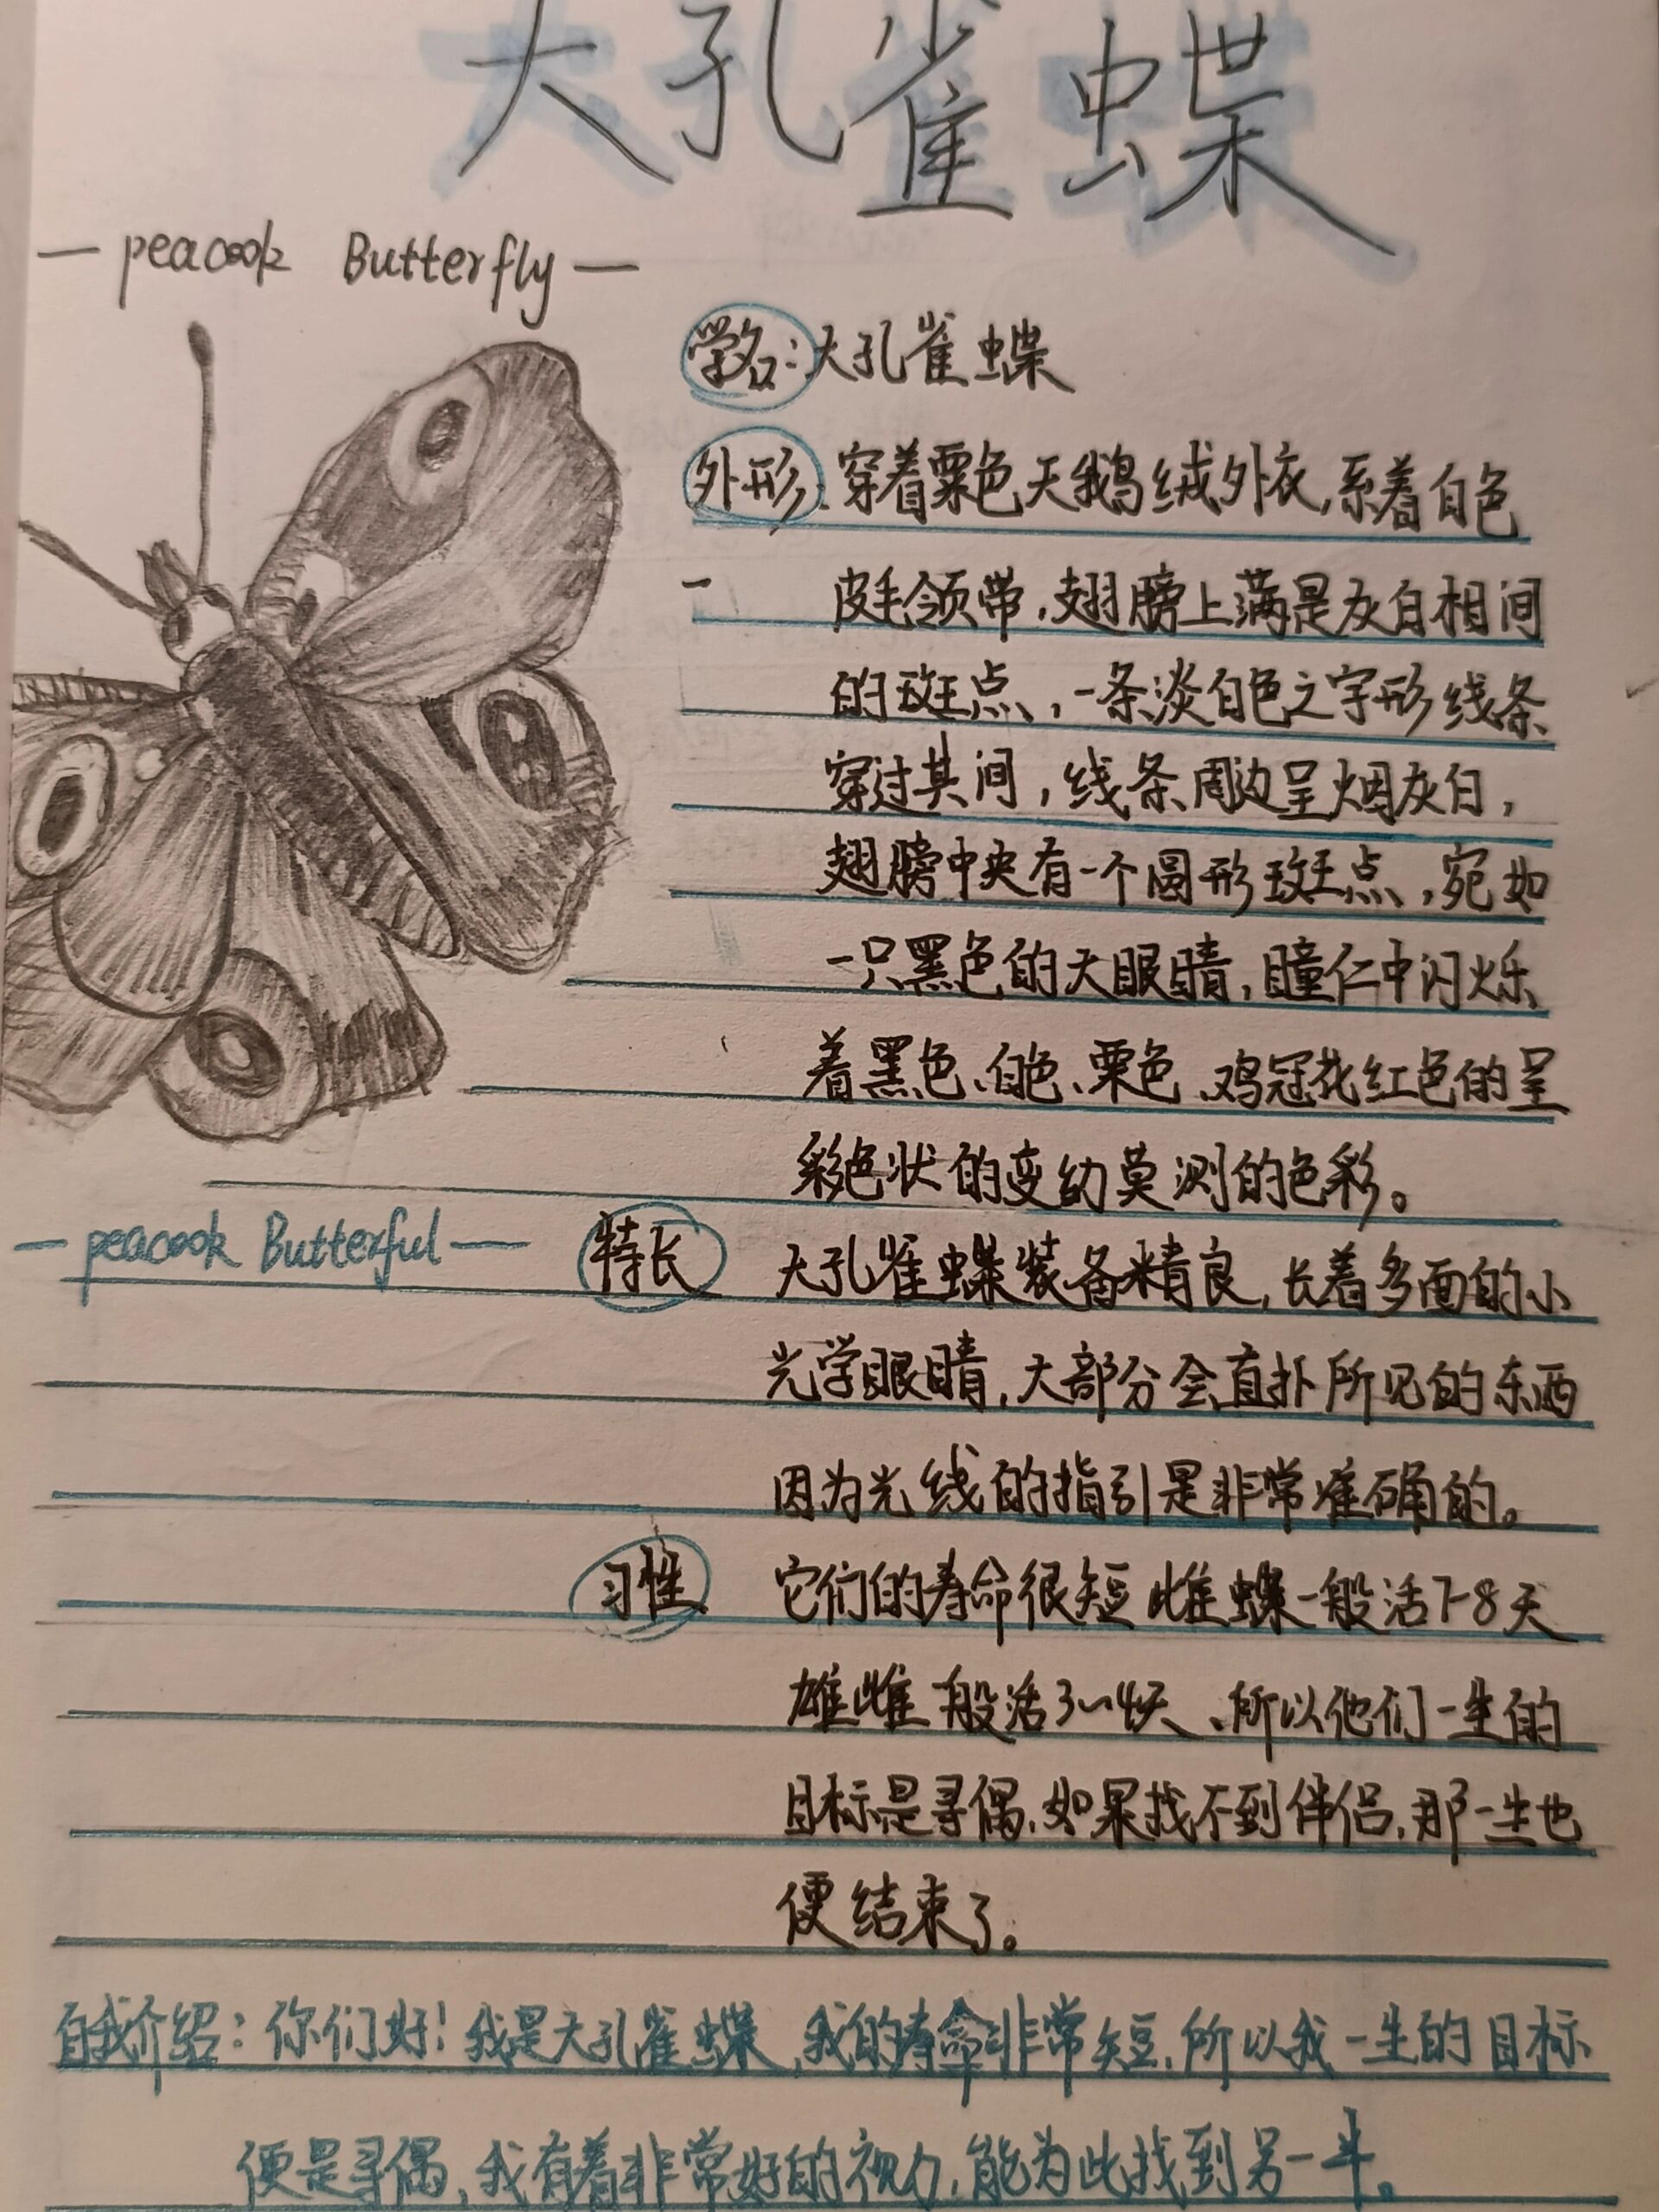 大孔雀蝶
— peacook Butterfly —
学名：大孔雀蝶
外形：穿着栗色天鹅绒外衣，系着白色
皮毛领带，翅膀上满是灰白相间
的斑点，一条淡白色之字形线条
穿过其间，线条周边呈烟灰白，
翅膀中央有一个圆形斑点，宛如
一只黑色的大眼睛，瞳仁中闪烁
着黑色、白色、栗色、鸡冠花红色的呈
彩色状的变幻莫测的色彩。
— peacook Butterful —
特长 大孔雀蝶装备精良，长着多面的小
光学眼睛，大部分会直扑所见的东西
因为光线的指引是非常准确的。
习性 它们的寿命很短 雌蝶一般活7-8天
雄雌一般活3~4天、所以他们一生的
目标是寻偶，如果找不到伴侣，那一生也
便结束了。
自我介绍：你们好！我是大孔雀蝶，我的寿命非常短，所以我一生的目标
便是寻偶，我有着非常好的视力，能为此找到另一半。